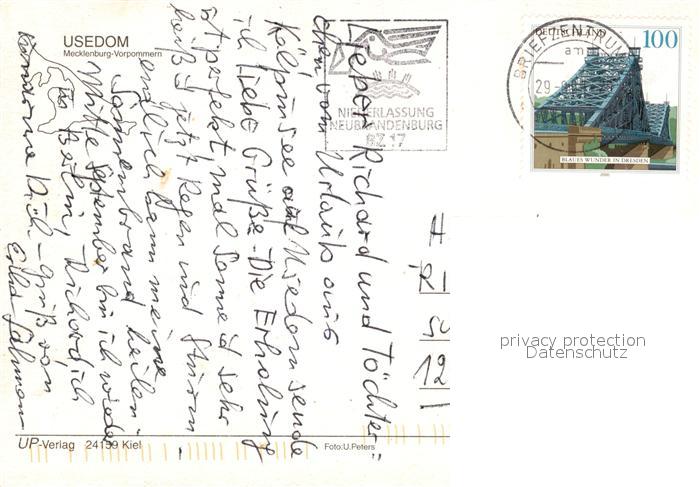 USEDOM
Mecklenburg-Vorpommern
NIEDERLASSUNG
NEUBRANDENBURG
BZ 17
BRIEFZENTRUM
am
29
DEUTSCHLAND
100
BLAUES WUNDER IN DRESDEN
Lieber Richard und Töchter-
chen vom Urlaub aus
Kölpinsee auf Usedom sende
ich liebe Grüße. Die Erholung
ist perfekt mal Sonne id sehr
heiß id jetzt Regen und Sturm
endlich kann meine
Sonnenbrand heilen.
Mitte September bin ich wieder
in Berlin, Richard ich
Dich - Gruß von
12
privacy protection
Datenschutz
UP-Verlag 24159 Kiel
Foto:U.Peters